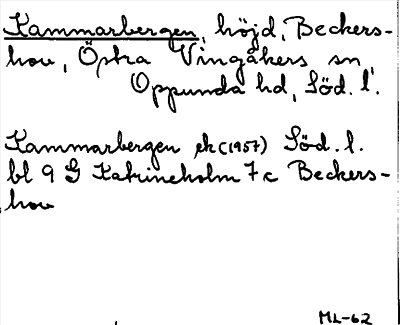 Kammarbergen, höjd, Beckers-
hov, Östra Vingåkers sn,
Oppunda hd, Söd. l.
Kammarbergen ek (1957) Söd. l.
bl 9 G Katrineholm 7 c Beckers-
hov
ML-62